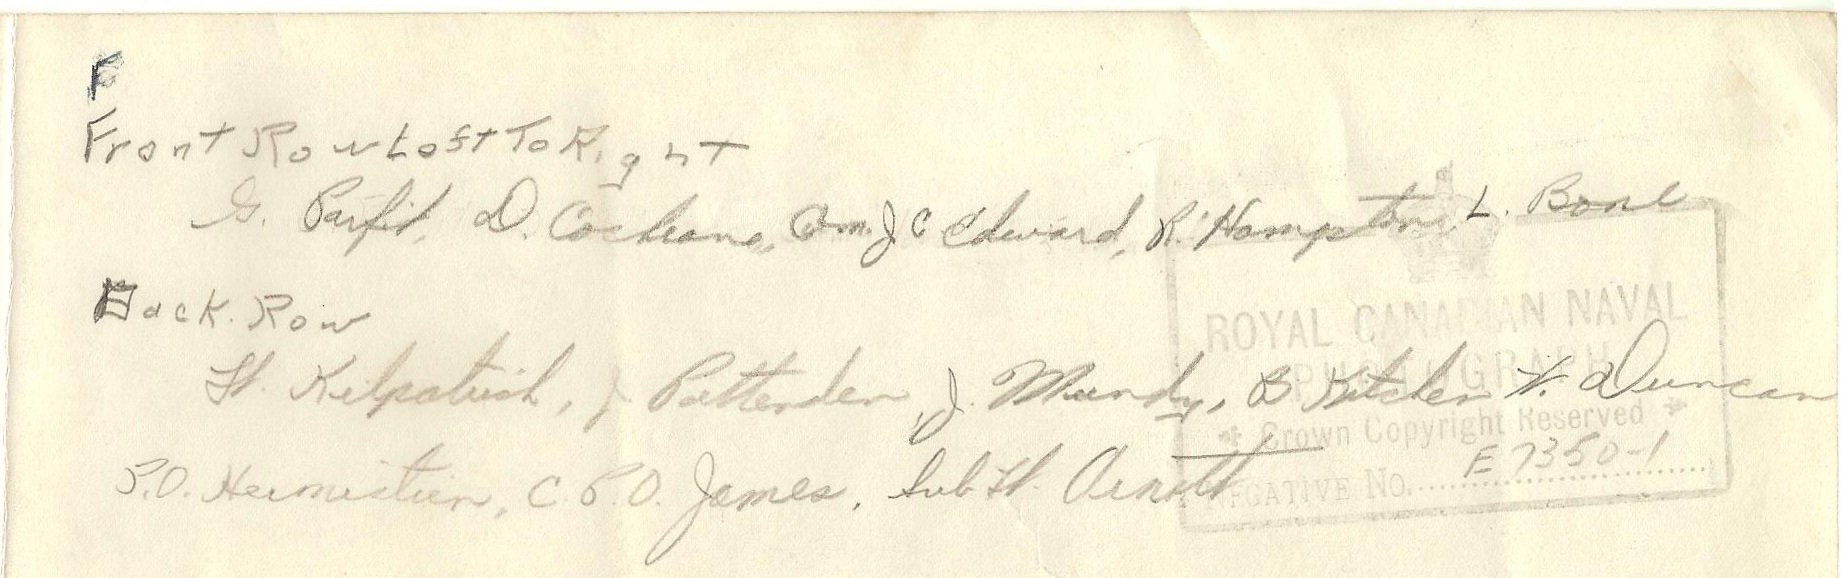 F
Front Row Left To Right
G. Parfit, D. Cochrane, Com. J C Edward, R. Hampton, L. Bone
Back. Row
Lt. Kilpatrick, J Pattenden, J. Mundy, B Kitchen W. Duncan
P.O. Hermistien, C.P.O. James, Sub Lt. Arnott
ROYAL CANADIAN NAVAL
PHOTOGRAPH
* Crown Copyright Reserved *
NEGATIVE No. E 7350-1